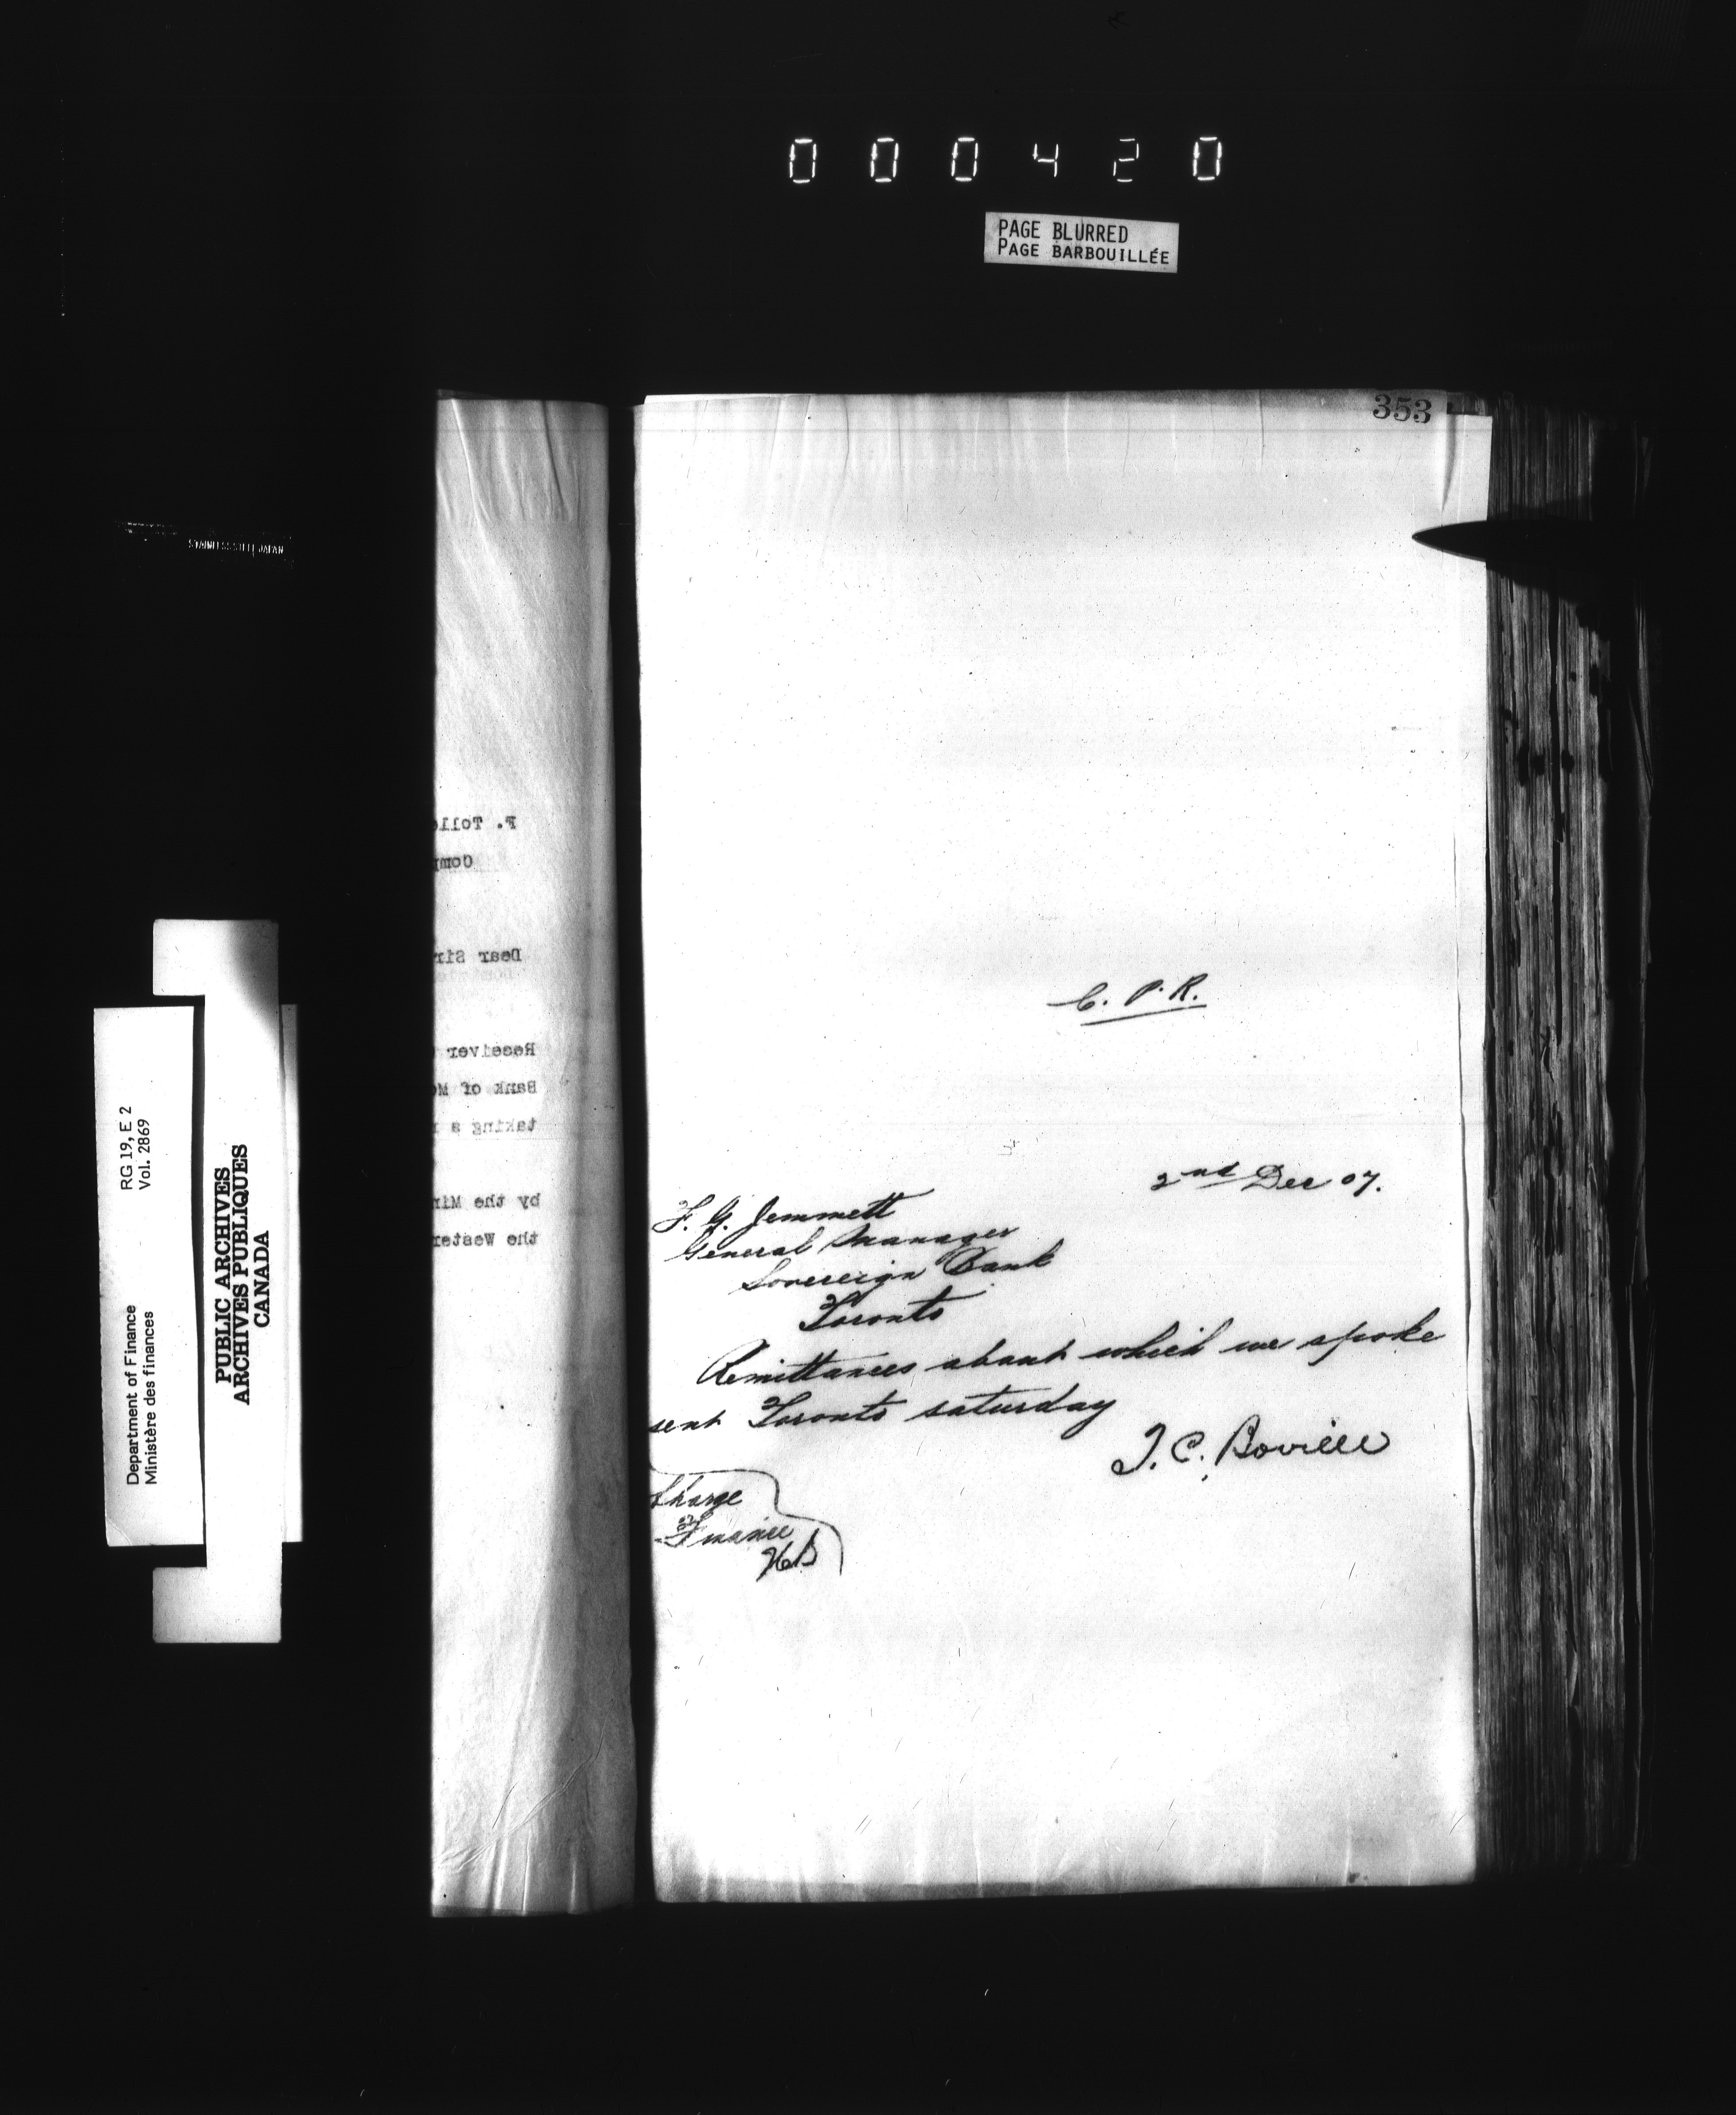 000420
PAGE BLURRED
PAGE BARBOUILLÉE
353
STAINLESS STEEL JAPAN
F. Toll
Com
Dear Sir
Receiver
Bank of Mo
taking a
by the Min
the Wester
RG 19, E 2
Vol. 2869
Department of Finance
Ministère des finances
PUBLIC ARCHIVES
ARCHIVES PUBLIQUES
CANADA
C. P. R.
2nd Dec 07.
F. G. Jemmett
General Manager
Sovereign Bank
Toronto
Remittances about which we spoke
sent Toronto saturday
T. C. Boville
Charge
Finance